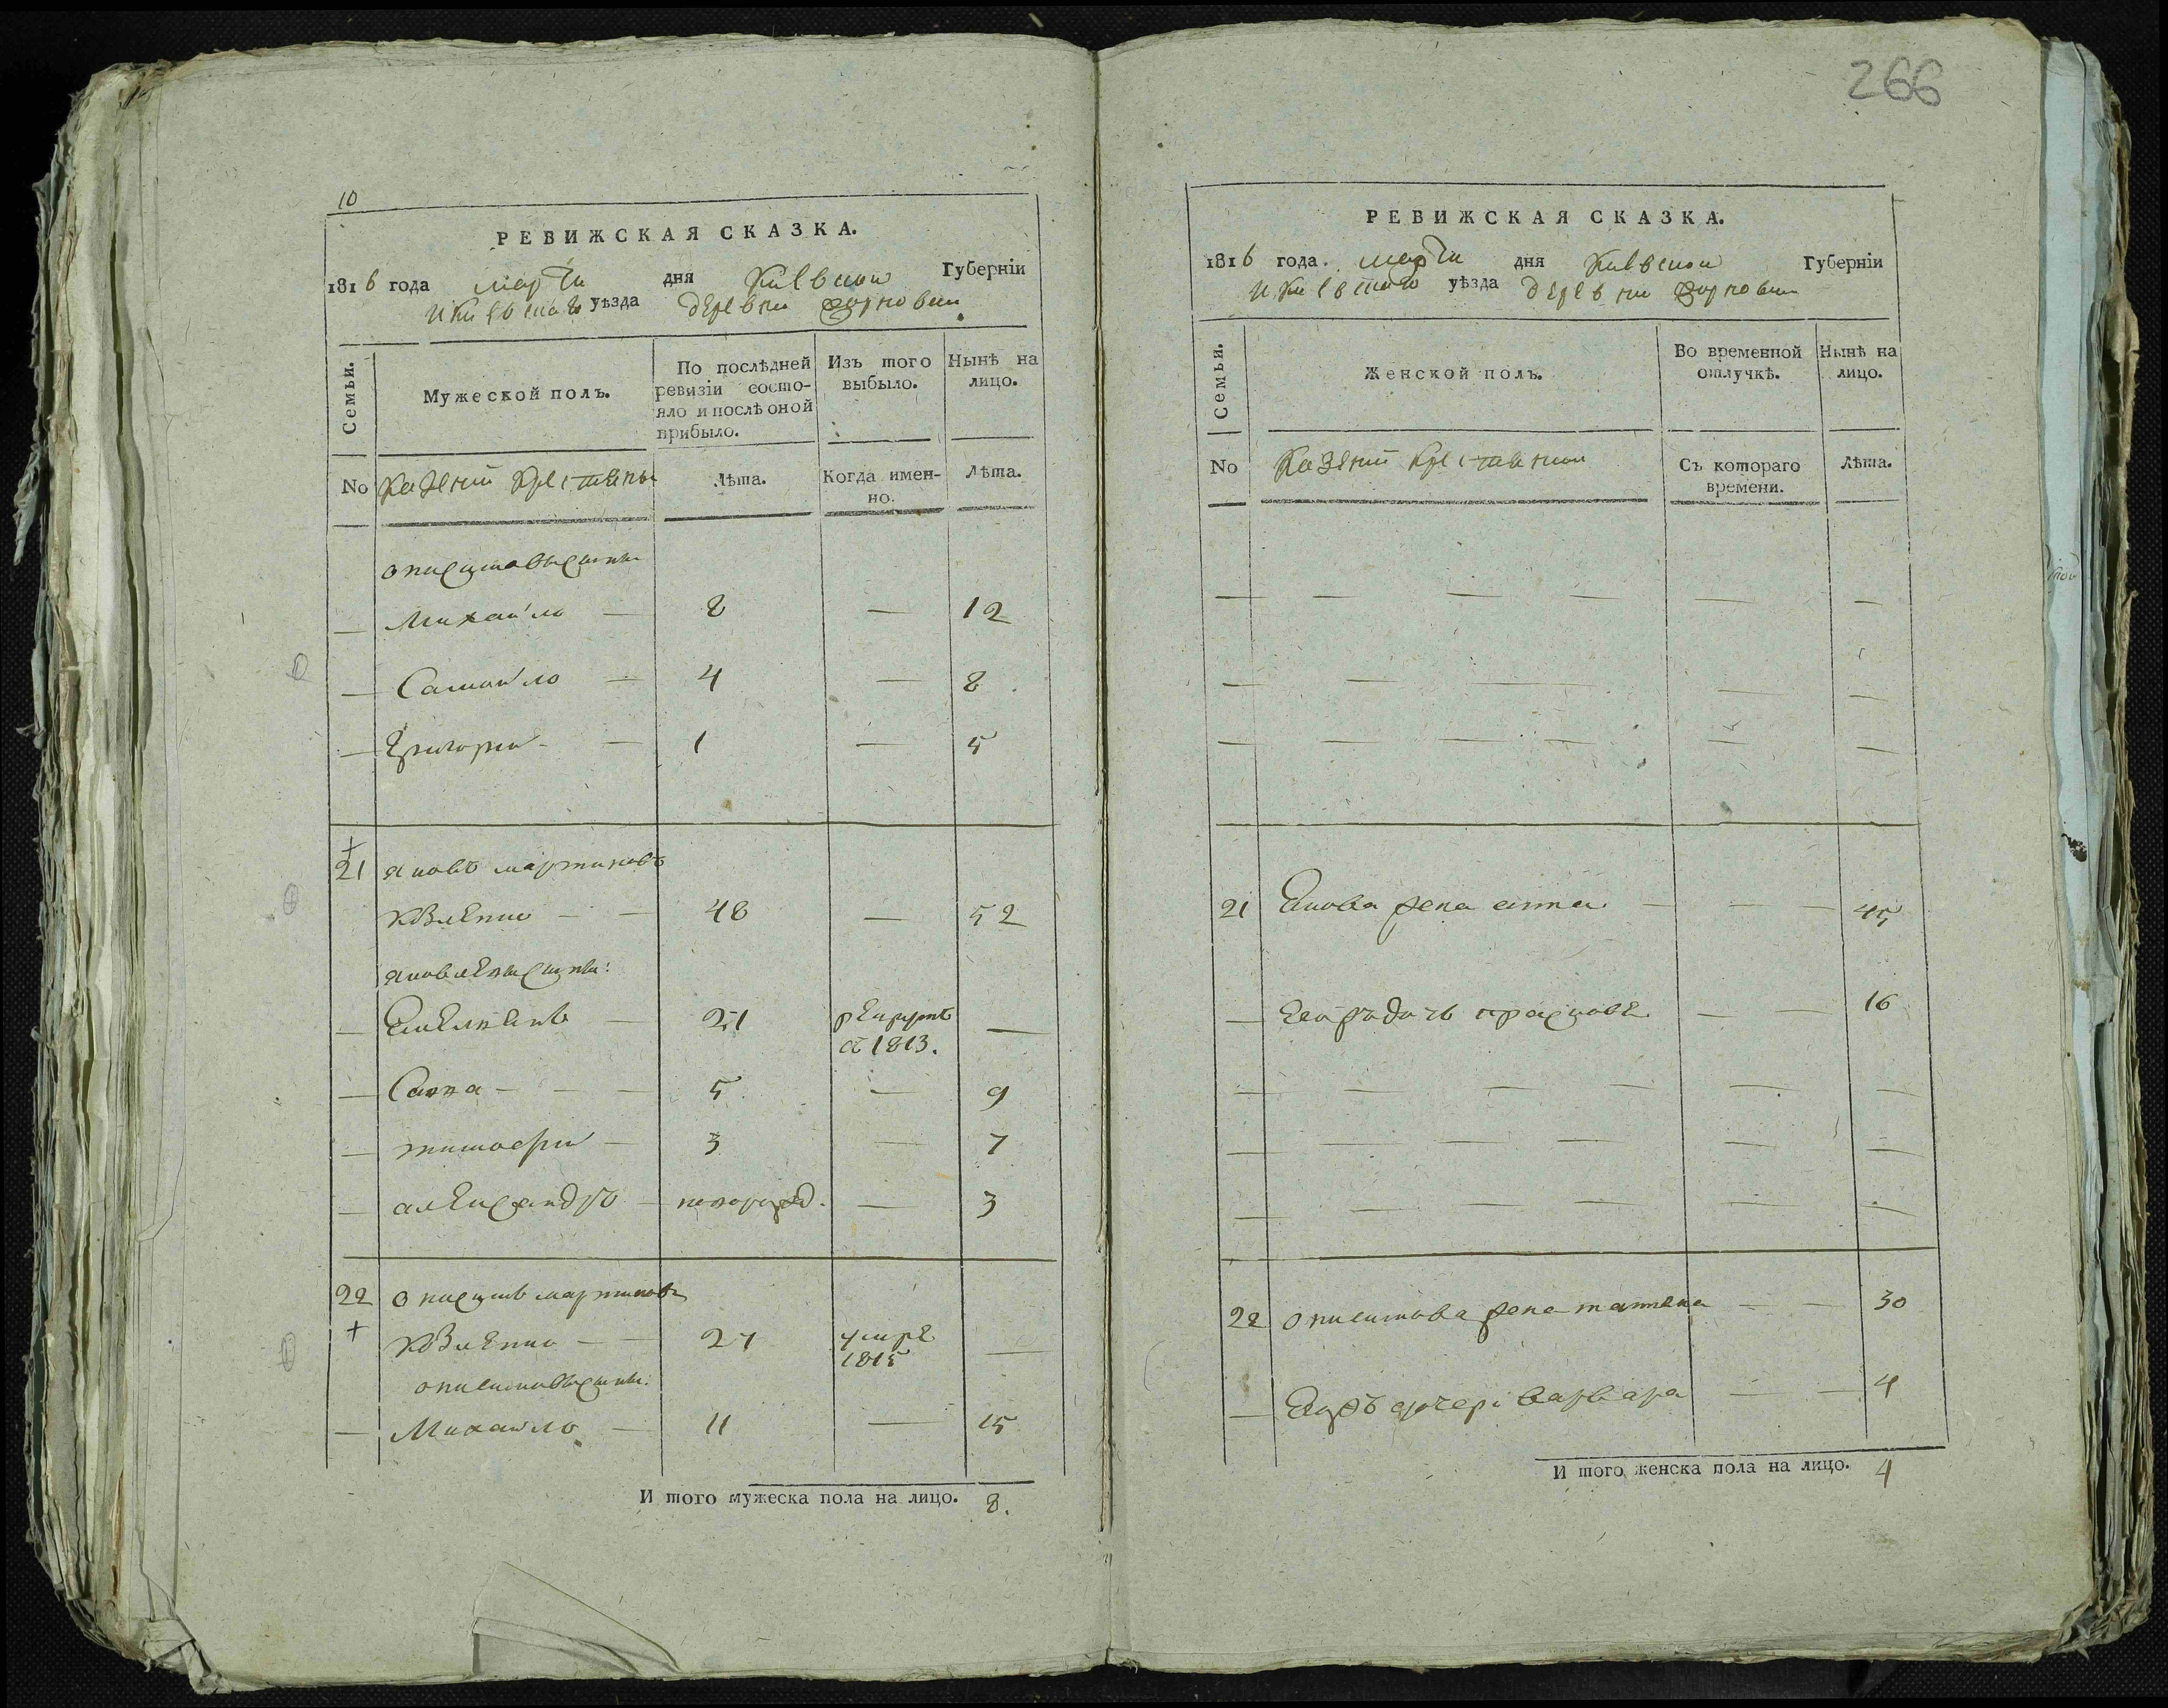 266
10
РЕВИЖСКАЯ СКАЗКА.
1816 года марта дня Киевской Губерніи
И Киевскаго уѣзда деревни
Семьи.
Мужеской полъ.
По послѣдней ревизіи состояло и послѣ оной прибыло.
Изъ того выбыло.
Нынѣ на лицо.
No Казенни крестяны
Лѣта.
Когда именно.
Лѣта.
онисимовы сыны
— Михайло — 8 — 12
— Самойло — 4 — 8
— Григори — 1 — 5
21 яковъ мартиновъ
48 — 52
яковлевы сыны:
— Емелянъ — 21 рекрутъ —
в 1813.
— Сава — 5 — 9
— тимофи — 3 — 7
— александръ — новорожд. — 3
22 онисимъ мартиновъ
27 умре —
1815
онисимовы сыны:
— Михайло — 11 — 15
И того мужеска пола на лицо. 8.
РЕВИЖСКАЯ СКАЗКА.
1816 года. марта дня Киевской Губерніи
И Киевскаго уѣзда деревни
Семьи.
Женской полъ.
Во временной отлучкѣ.
Нынѣ на лицо.
No Казенни крестянки
Съ котораго времени.
Лѣта.
21 Якова жена анна — 45
— Его дочь прасковя — 16
22 онисимова жена татяна — 30
— Его дочери варвара — 4
И того женска пола на лицо. 4